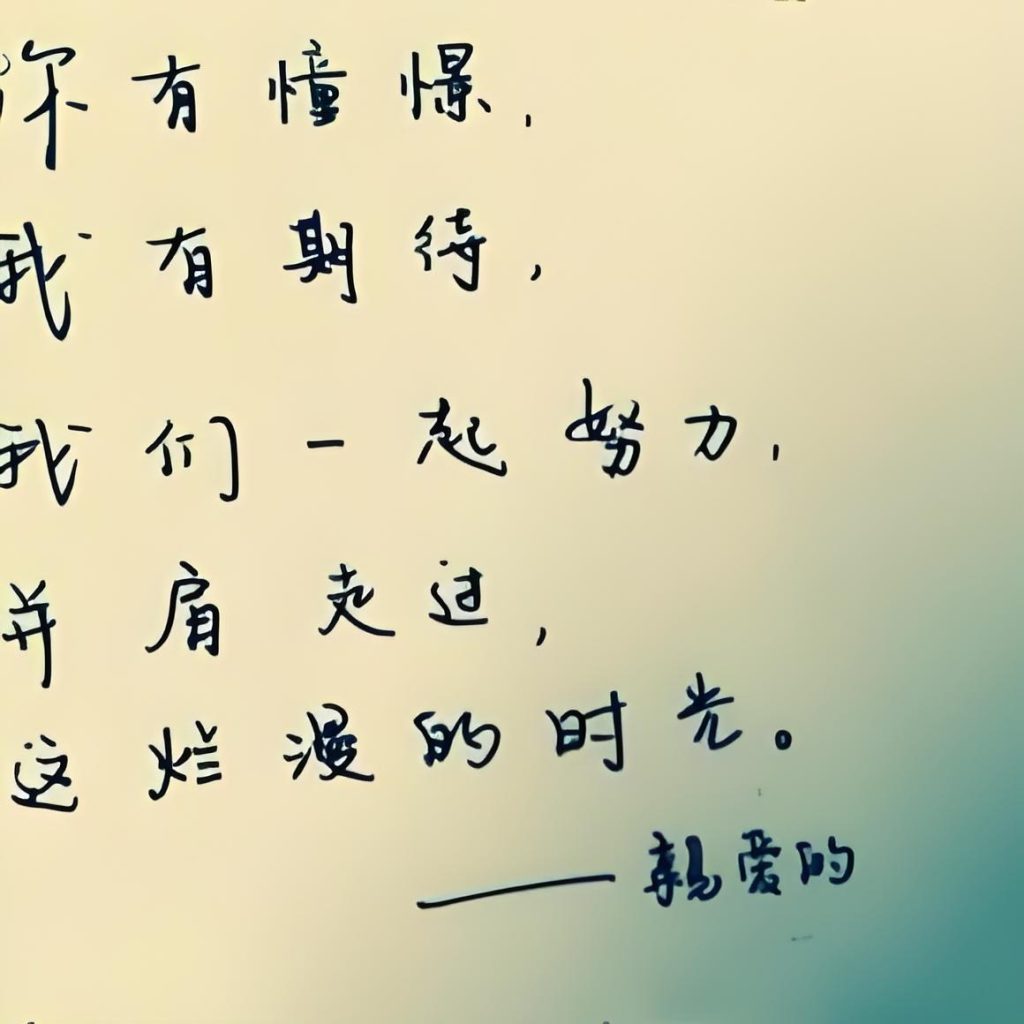 你有憧憬,
我有期待,
我们一起努力,
并肩走过,
这烂漫的时光。
——親爱的